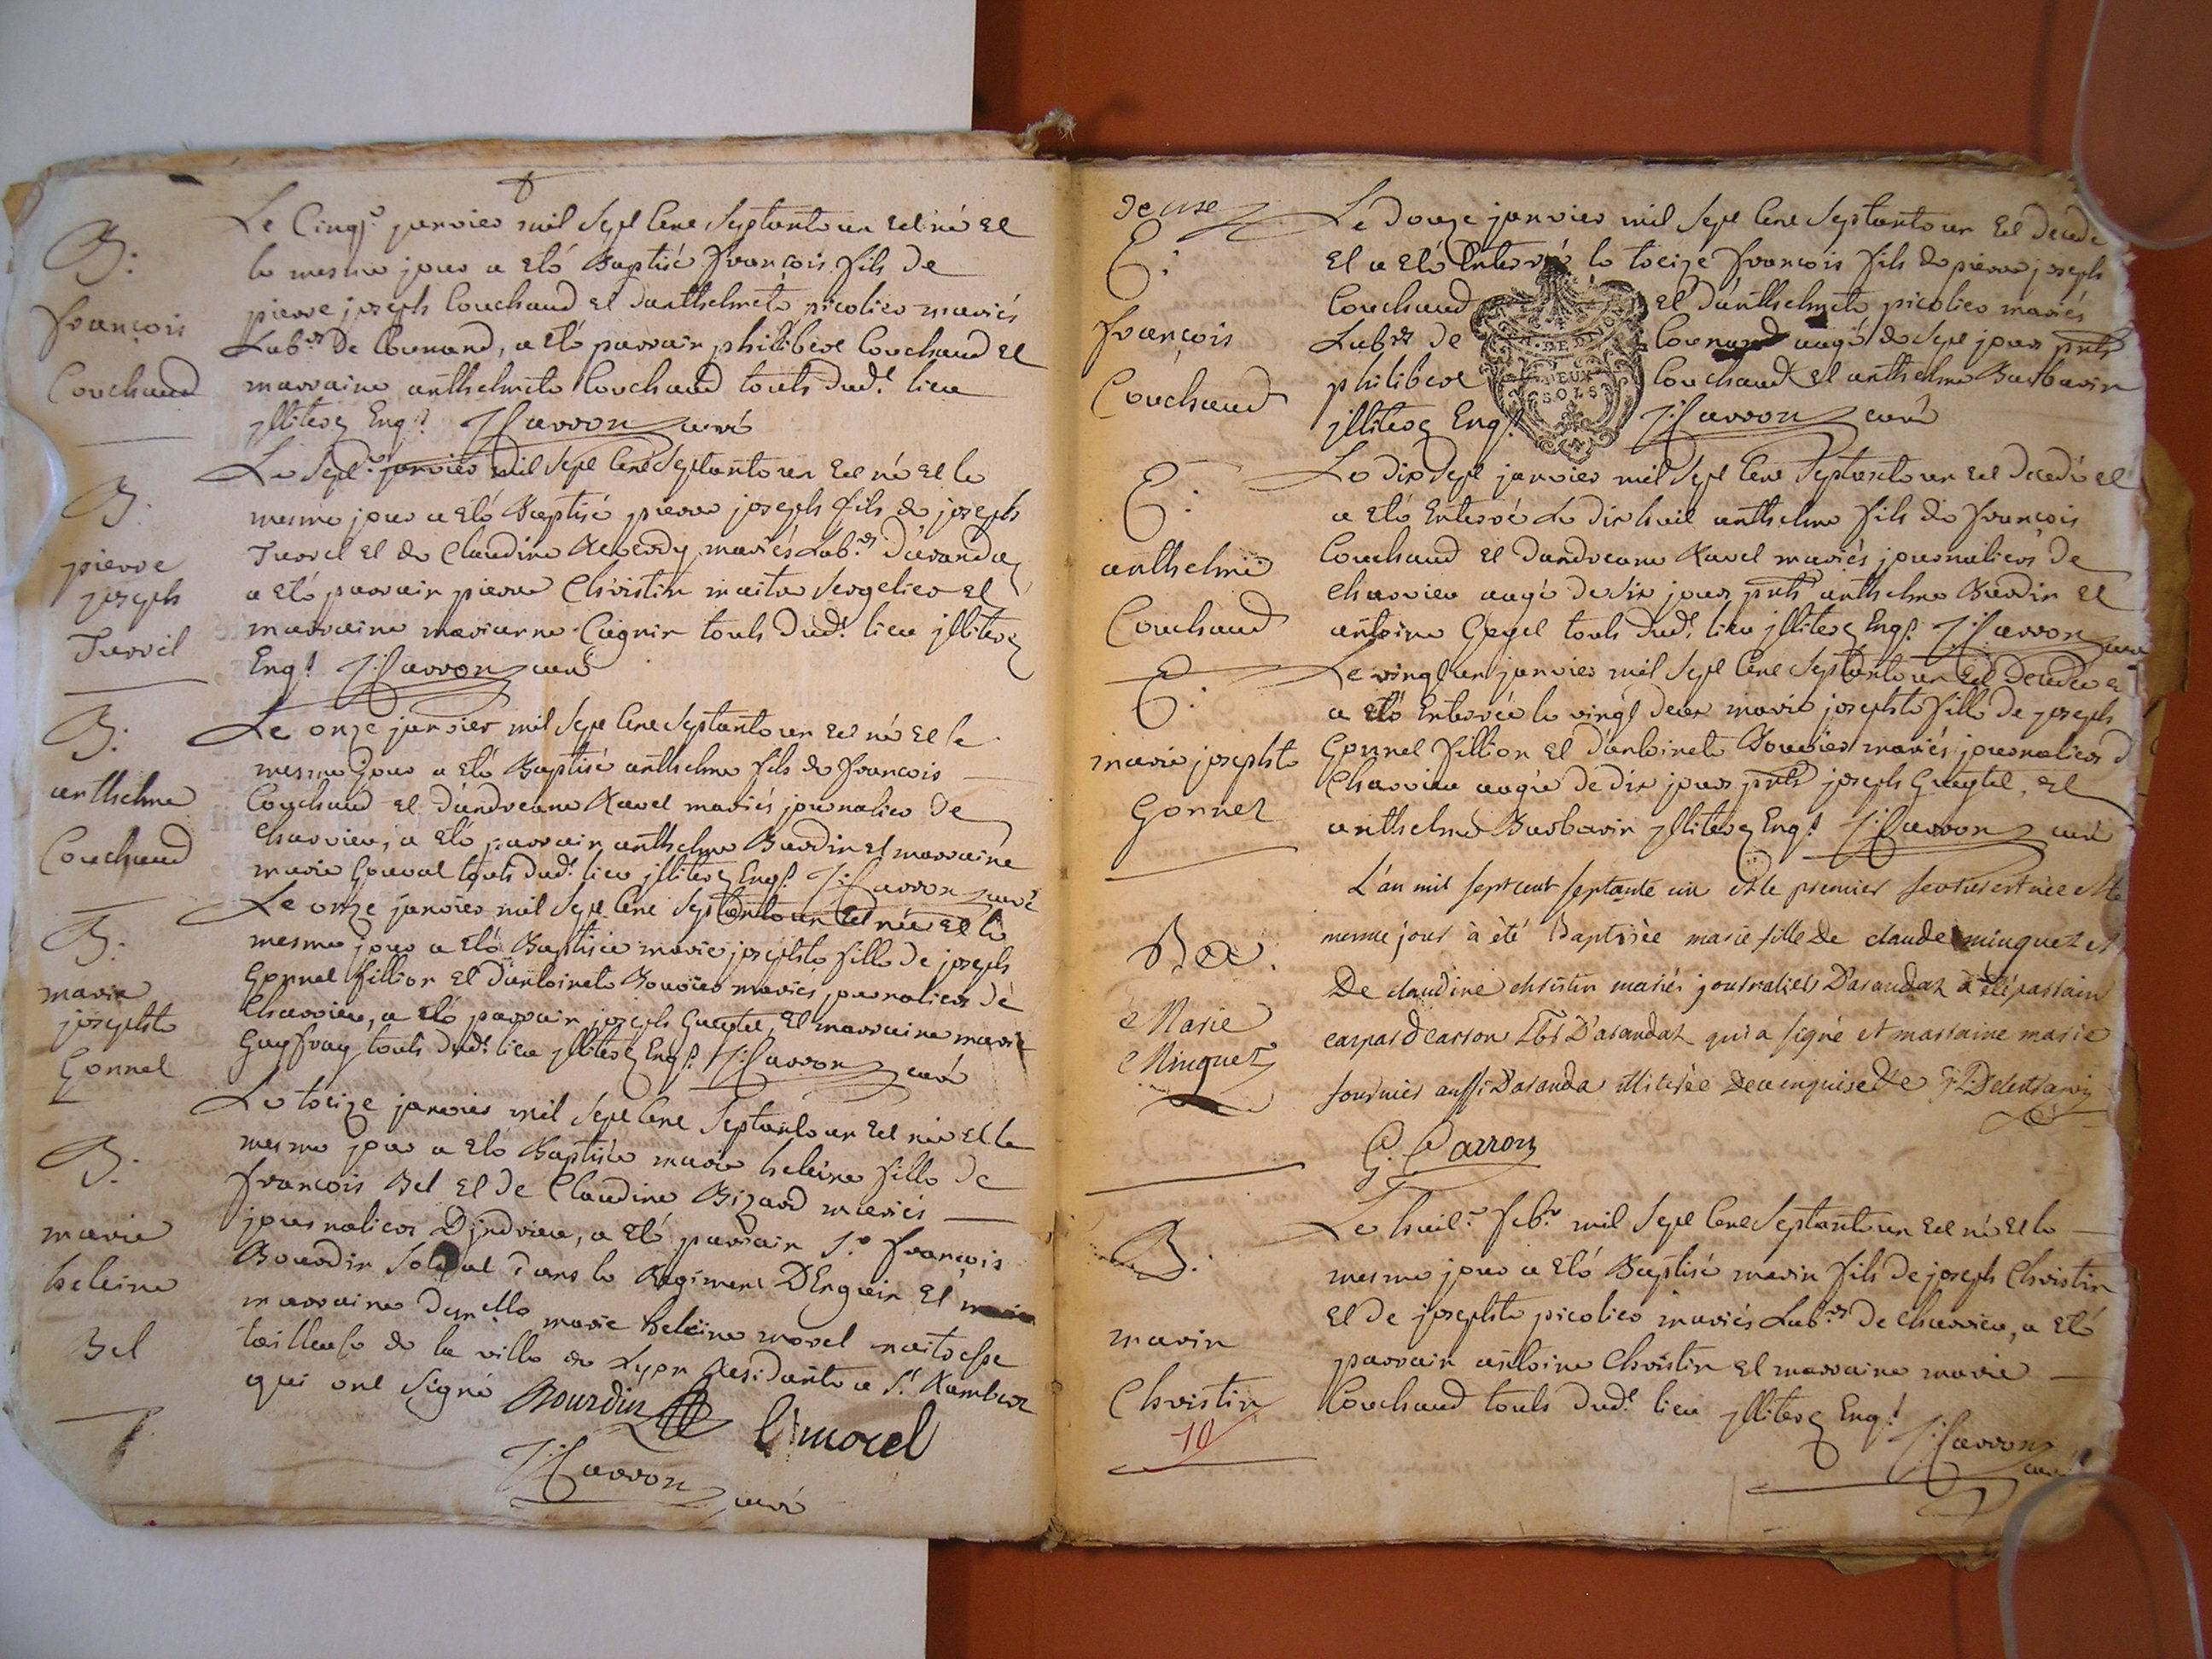 B:
françois
Couchaud
Le Cinqe janvier mil Sept Cent Septante un est né et
le mesme jour a eté Baptisé françois fils de
pierre joseph Couchaud et danthelmete picolier mariés
Labrs De Counand, a eté parrain philibert Couchaud et
marraine anthelmete Couchaud touts dudt lieu
jlliterez Enqs J: Carron curé
B:
pierre
joseph
Turrel
Le Septe janvier mil Sept Cent Septante un est né et le
mesme jour a eté Baptisé pierre joseph fils de joseph
Turrel et de Claudine Reverdy mariés Labrs d'arandaz
a eté parrain pierre Christin maitre Sergetier et
marraine marianne Cagnin touts dudt lieu jlliterez
Enqs J: Carron curé
B:
anthelme
Couchaud
Le onze janvier mil Sept Cent Septante un est né et le
mesme jour a eté Baptisé anthelme fils de françois
Couchaud et dandreane Ravel mariés journalier de
Charvieu, a eté parrain anthelme Bardin et marraine
marie touts dudt lieu jlliterez Enqs J: Carron curé
B:
marie
josephte
Gonnet
Le onze janvier mil Sept Cent Septante un est née et le
mesme jour a eté Baptisée marie josephte fille de joseph
Gonnet fillion et dantoinete Bouvier mariés journaliers de
Charvieu, a eté parrain joseph et marraine marie
Guyfray touts dudt lieu jlliterez Enqs J: Carron curé
B:
marie
heleine
Bel
Le treize janvier mil Sept Cent Septante un est née et le
mesme jour a eté Baptisée marie heleine fille de
françois Bel et de Claudine Bizard mariés
journaliers D'jndrieu, a eté parrain Sr françois
Bourdin Soldat dans le Regiment D'Enguin et
marraine demlle marie heleine morel maitresse
tailleuse de la ville de Lyon Residante a St Rambert
qui ont Signé Bourdin morel
J: Carron curé
deuxe
E:
françois
Couchaud
Le Douze janvier mil Sept Cent Septante un est Decedé
et a eté Enterré le treize françois fils de pierre joseph
Couchaud et d'anthelmete picolier mariés
Labrs de Counand aagé de Sept jours prts
philibert Couchaud et anthelme Barbarin
jlliterez Enqs J: Carron curé
DEUX
SOLS
E:
anthelme
Couchaud
Le dix Sept janvier mil Sept Cent Septante un est Decedé et
a eté Enterré Le dix huit anthelme fils de françois
Couchaud et Dandreane Ravel mariés journaliers de
Charvieu aagé de Six jours prts anthelme Bardin et
antoine touts dudt lieu jlliterez Enqs J: Carron curé
E:
marie josephte
Gonnet
Le vingt un janvier mil Sept Cent Septante un est Decedée et
a eté Enterrée le vingt deux marie josephte fille de joseph
Gonnet fillion et d'antoinete Bouvier mariés journaliers d
Charvieu aagée de dix jours prts joseph et
anthelme Barbarin jlliterez Enqs J: Carron curé
Bax:
Marie
Minguet
L'an mil sept cent septante un et le premier fevrier est née et le
meme jour à été Baptisèe marie fille De claude minguet et
De claudine christin mariés journaliers D'arandaz a été parrain
caspard carron Lbr D'arandaz qui a signé et marraine marie
fournier aussi D'aranda illiterée De ce enquise
G. Carron
B:
marin
Christin
10
Le huite febr mil Sept Cent Septante un est né et le
mesme jour a eté Baptisé marin fils de joseph Christin
et de josephte picolier mariés Labrs De Charvieu, a eté
parrain antoine Christin et marraine marie
Couchaud touts dudt lieu jlliterez Enqs
J: Carron
curé